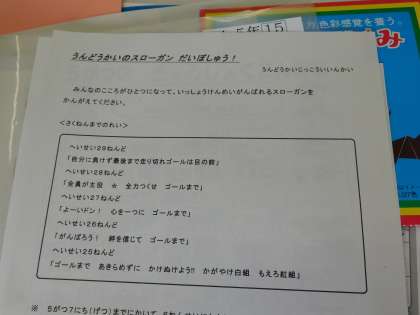 色彩感覚を養う。
5年
15
み
うんどうかいのスローガン だいぼしゅう！
うんどうかいじっこういいんかい
みんなのこころがひとつになって、いっしょうけんめいがんばれるスローガンを
かんがえてください。
<さくねんまでのれい>
へいせい29ねんど
「自分に負けず最後まで走り切れゴールは目の前」
へいせい28ねんど
「全員が主役 ☆ 全力つくせ ゴールまで」
へいせい27ねんど
「よーいドン！ 心を一つに ゴールまで」
へいせい26ねんど
「がんばろう！ 絆を信じて ゴールまで」
へいせい25ねんど
「ゴールまで あきらめずに かけぬけよう!! かがやけ白組 もえろ紅組」
※ 5がつ7にち(げつ)までにかいて、